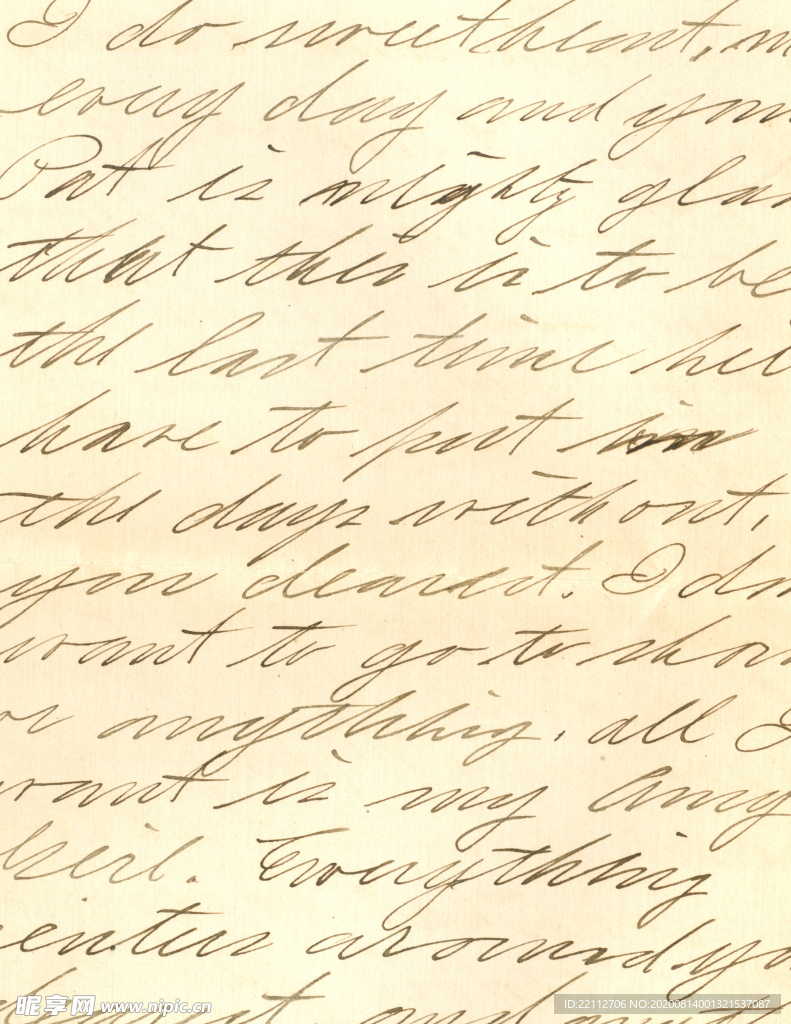 I do sweetheart, m
every day and you
Pat is mighty glad
that this is to be
the last time he'll
have to put in
the days without,
you dearest. I don
want to go to show
or anything, all I
want is my Amy
Girl. Everything
centers around yo
dearest, and
昵享网 www.nipic.cn
ID:22112706 NO:20200814001321537087